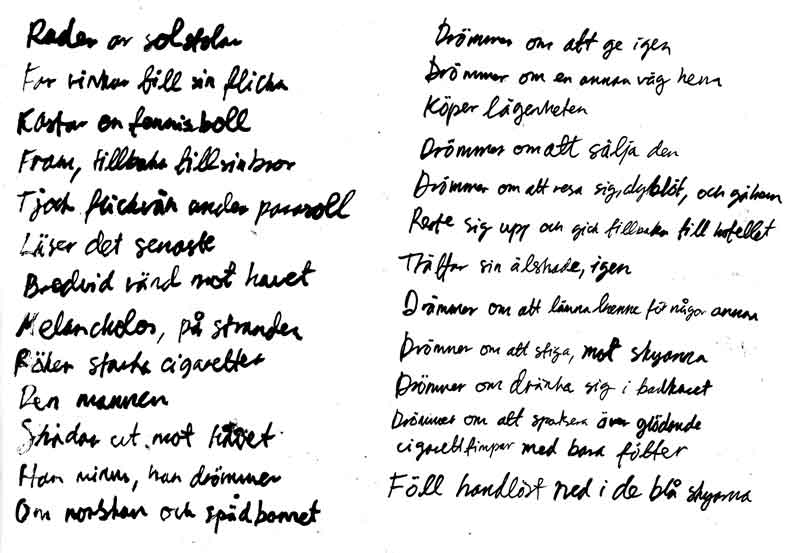 Rader av solstolar
Far vinkar till sin flicka
Kastar en tennisboll
Fram, tillbaka till sin bror
Tjock flickvän under parasoll
Läser det senaste
Bredvid vänd mot havet
Melankolos, på stranden
Röker starka cigaretter
Den mannen
Skådar ut mot havet
Han minns, han drömmer
Om norskan och spädbarnet
Drömmer om att ge igen
Drömmer om en annan väg hem
Köper lägenheten
Drömmer om att sälja den
Drömmer om att resa sig, dyblöt, och gå hem
Reste sig upp och gick tillbaka till hotellet
Träffar sin älskade, igen
Drömmer om att lämna henne för någon annan
Drömmer om att stiga, mot skyarna
Drömmer om dränka sig i badkaret
Drömmer om att spatsera över glödande
cigarettfimpar med bara fötter
Föll handlöst ned i de blå skyarna